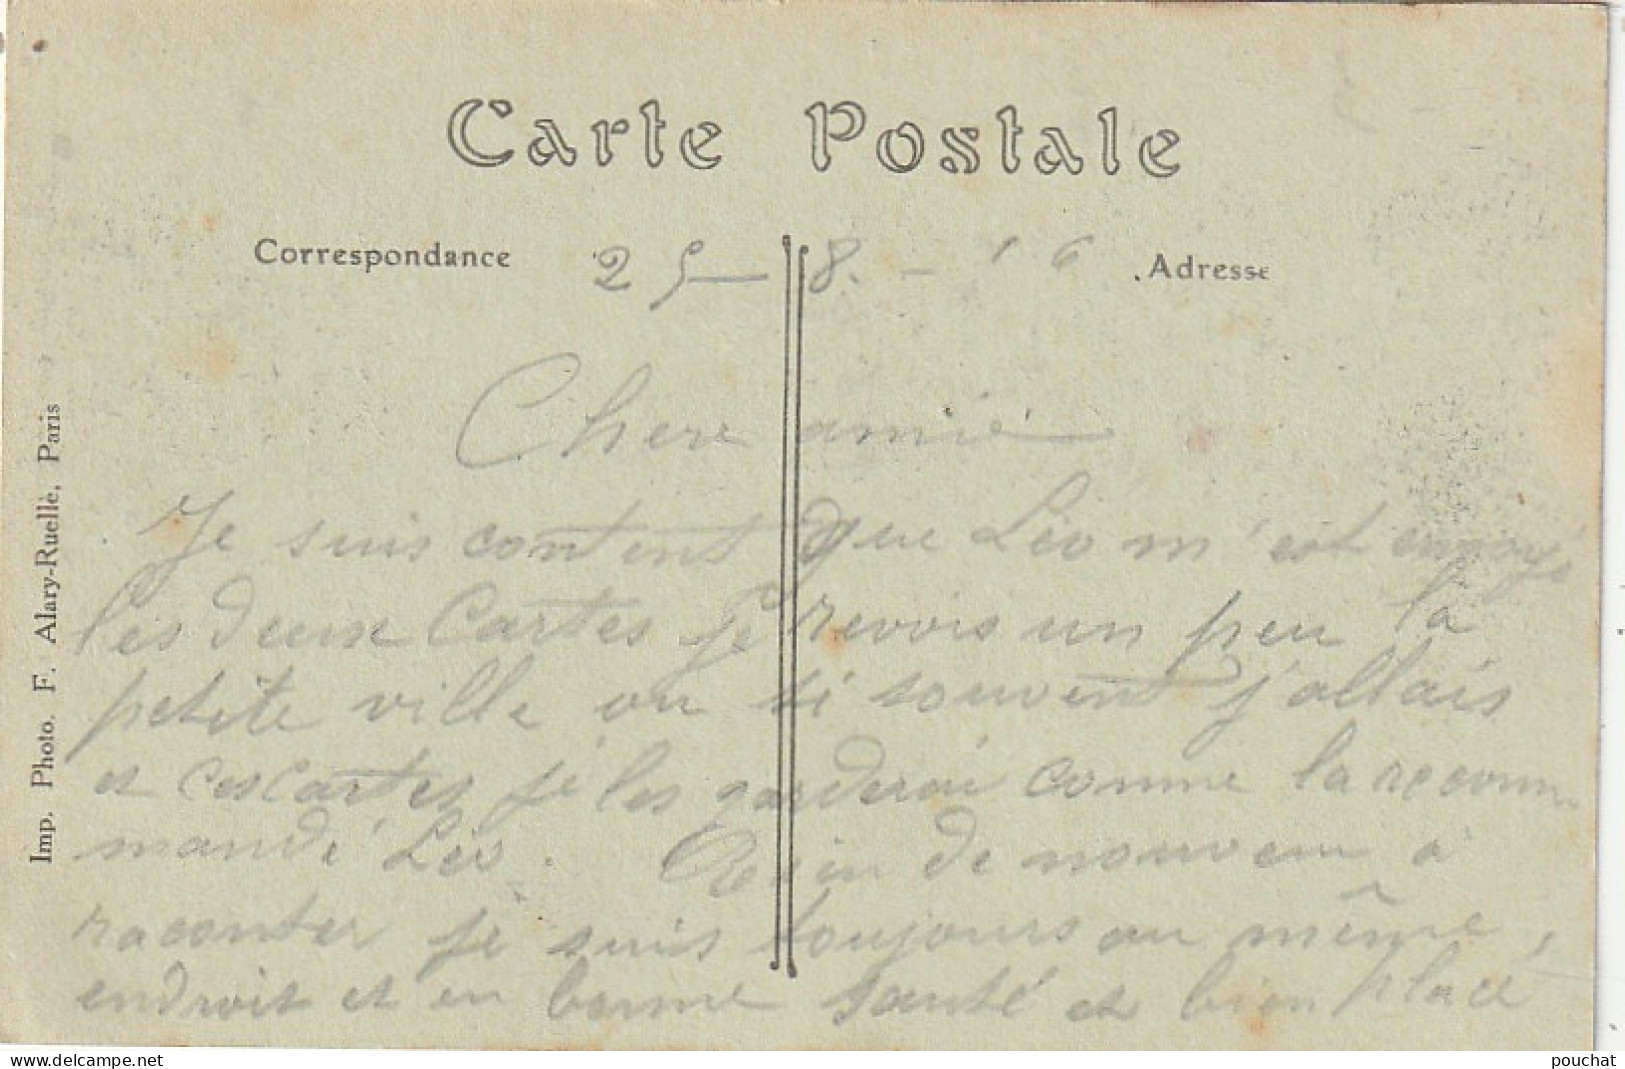 Carte Postale
Correspondance 25-8.-'6 Adresse
Chere amie
Je suis content que Léo m'est envoyé
les deux Cartes je revois un peu la
petite ville ou si souvent j'allais
et ces Cartes je les garderai comme la recom
mandé Léo. Rein de nouveau à
raconter je suis toujours au même
endroit et en bonne santé et bien placé
Imp. Photo. F. Alary-Ruelle, Paris
www.delcampe.net
pouchat